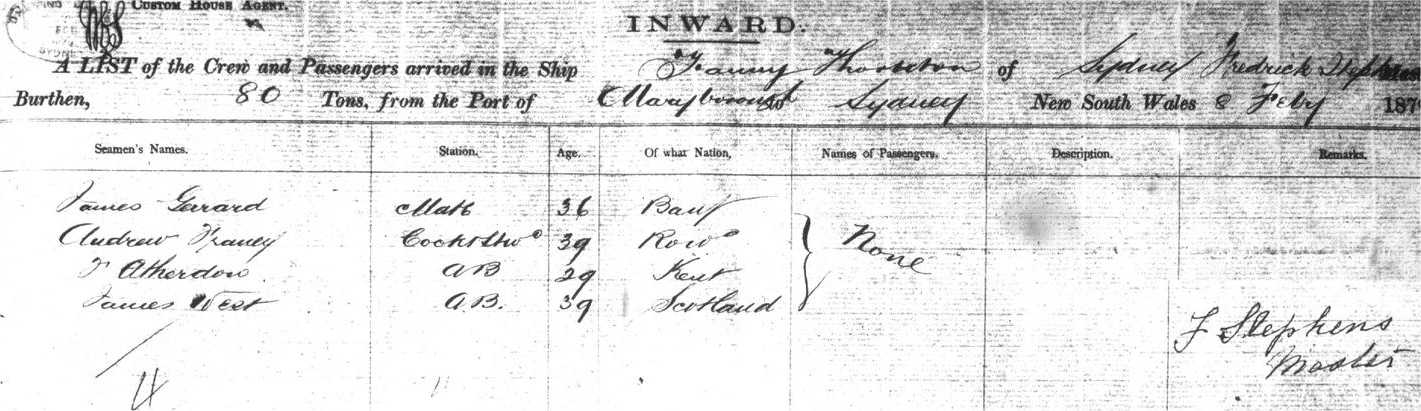 CUSTOM HOUSE AGENT.
SYDNEY
INWARD.
A LIST of the Crew and Passengers arrived in the Ship Fanny Thornton of Sydney Fredrick
Burthen, 80 Tons, from the Port of Maryborough to Sydney New South Wales 8 Feby 187
Seamen's Names. Station. Age. Of what Nation, Names of Passengers. Description. Remarks.
James Gerrard Mate 36 Banf
Andrew Franey Cook & Stwd 39 None
F Atherdon AB 29 Kent
James West A.B. 39 Scotland
F Stephens
Master
4